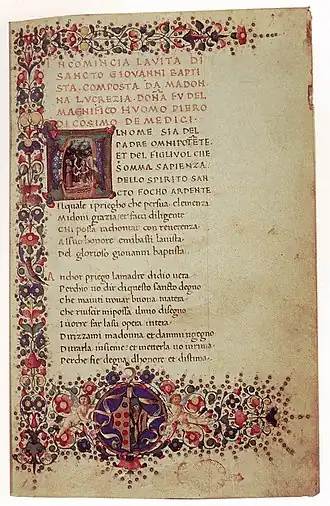 INCOMINCIA LAVITA DI
SANCTO GIOVANNI BAPTI
STA. COMPOSTA DA MADOH
NA LVCREZIA. DOÑA FV DEL
MAGNIFICO HVOMO PIERO
DI COSIMO DE MEDICI.
ALNOME SIA DEL
PADRE OMNIPOTẼTE
ET DEL FIGLIVOL CHE
SOMMA SAPIENZA
DELLO SPIRITO SAN
CTO FOCHO ARDENTE
Ilquale i priegho che persua clemenza
Mi doni grazia et facci diligente
CHi possa rachontar con reverenza
Del glorioso giovanni baptista.
Anchor priego lamadre didio vera
Perchio vo dir diquesto sancto degno
Che maiuti trovar buona matera
I vorre far lasu opera intera
Dirizzami madonna et dammi ingegno
Ditrarla insieme et metterla vo inrima
Perche sie degna dhonore et distima.